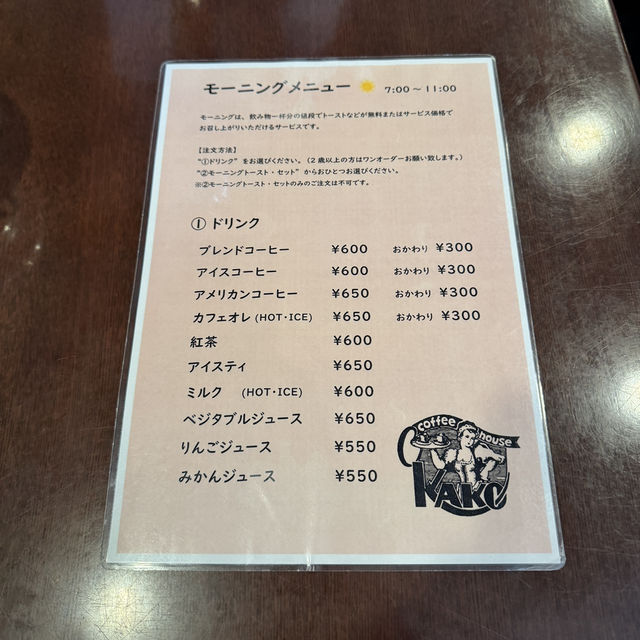 モーニングメニュー 7:00～11:00
モーニングは、飲み物一杯分の値段でトーストなどが無料またはサービス価格で
お召し上がりいただけるサービスです。
【注文方法】
"①ドリンク" をお選びください。(2歳以上の方はワンオーダーお願い致します。)
"②モーニングトースト・セット" からおひとつお選びください。
※②モーニングトースト・セットのみのご注文は不可です。
① ドリンク
ブレンドコーヒー ¥600 おかわり ¥300
アイスコーヒー ¥600 おかわり ¥300
アメリカンコーヒー ¥650 おかわり ¥300
カフェオレ (HOT・ICE) ¥650 おかわり ¥300
紅茶 ¥600
アイスティ ¥650
ミルク (HOT・ICE) ¥600
ベジタブルジュース ¥650
りんごジュース ¥550
みかんジュース ¥550
coffee house
KAKO